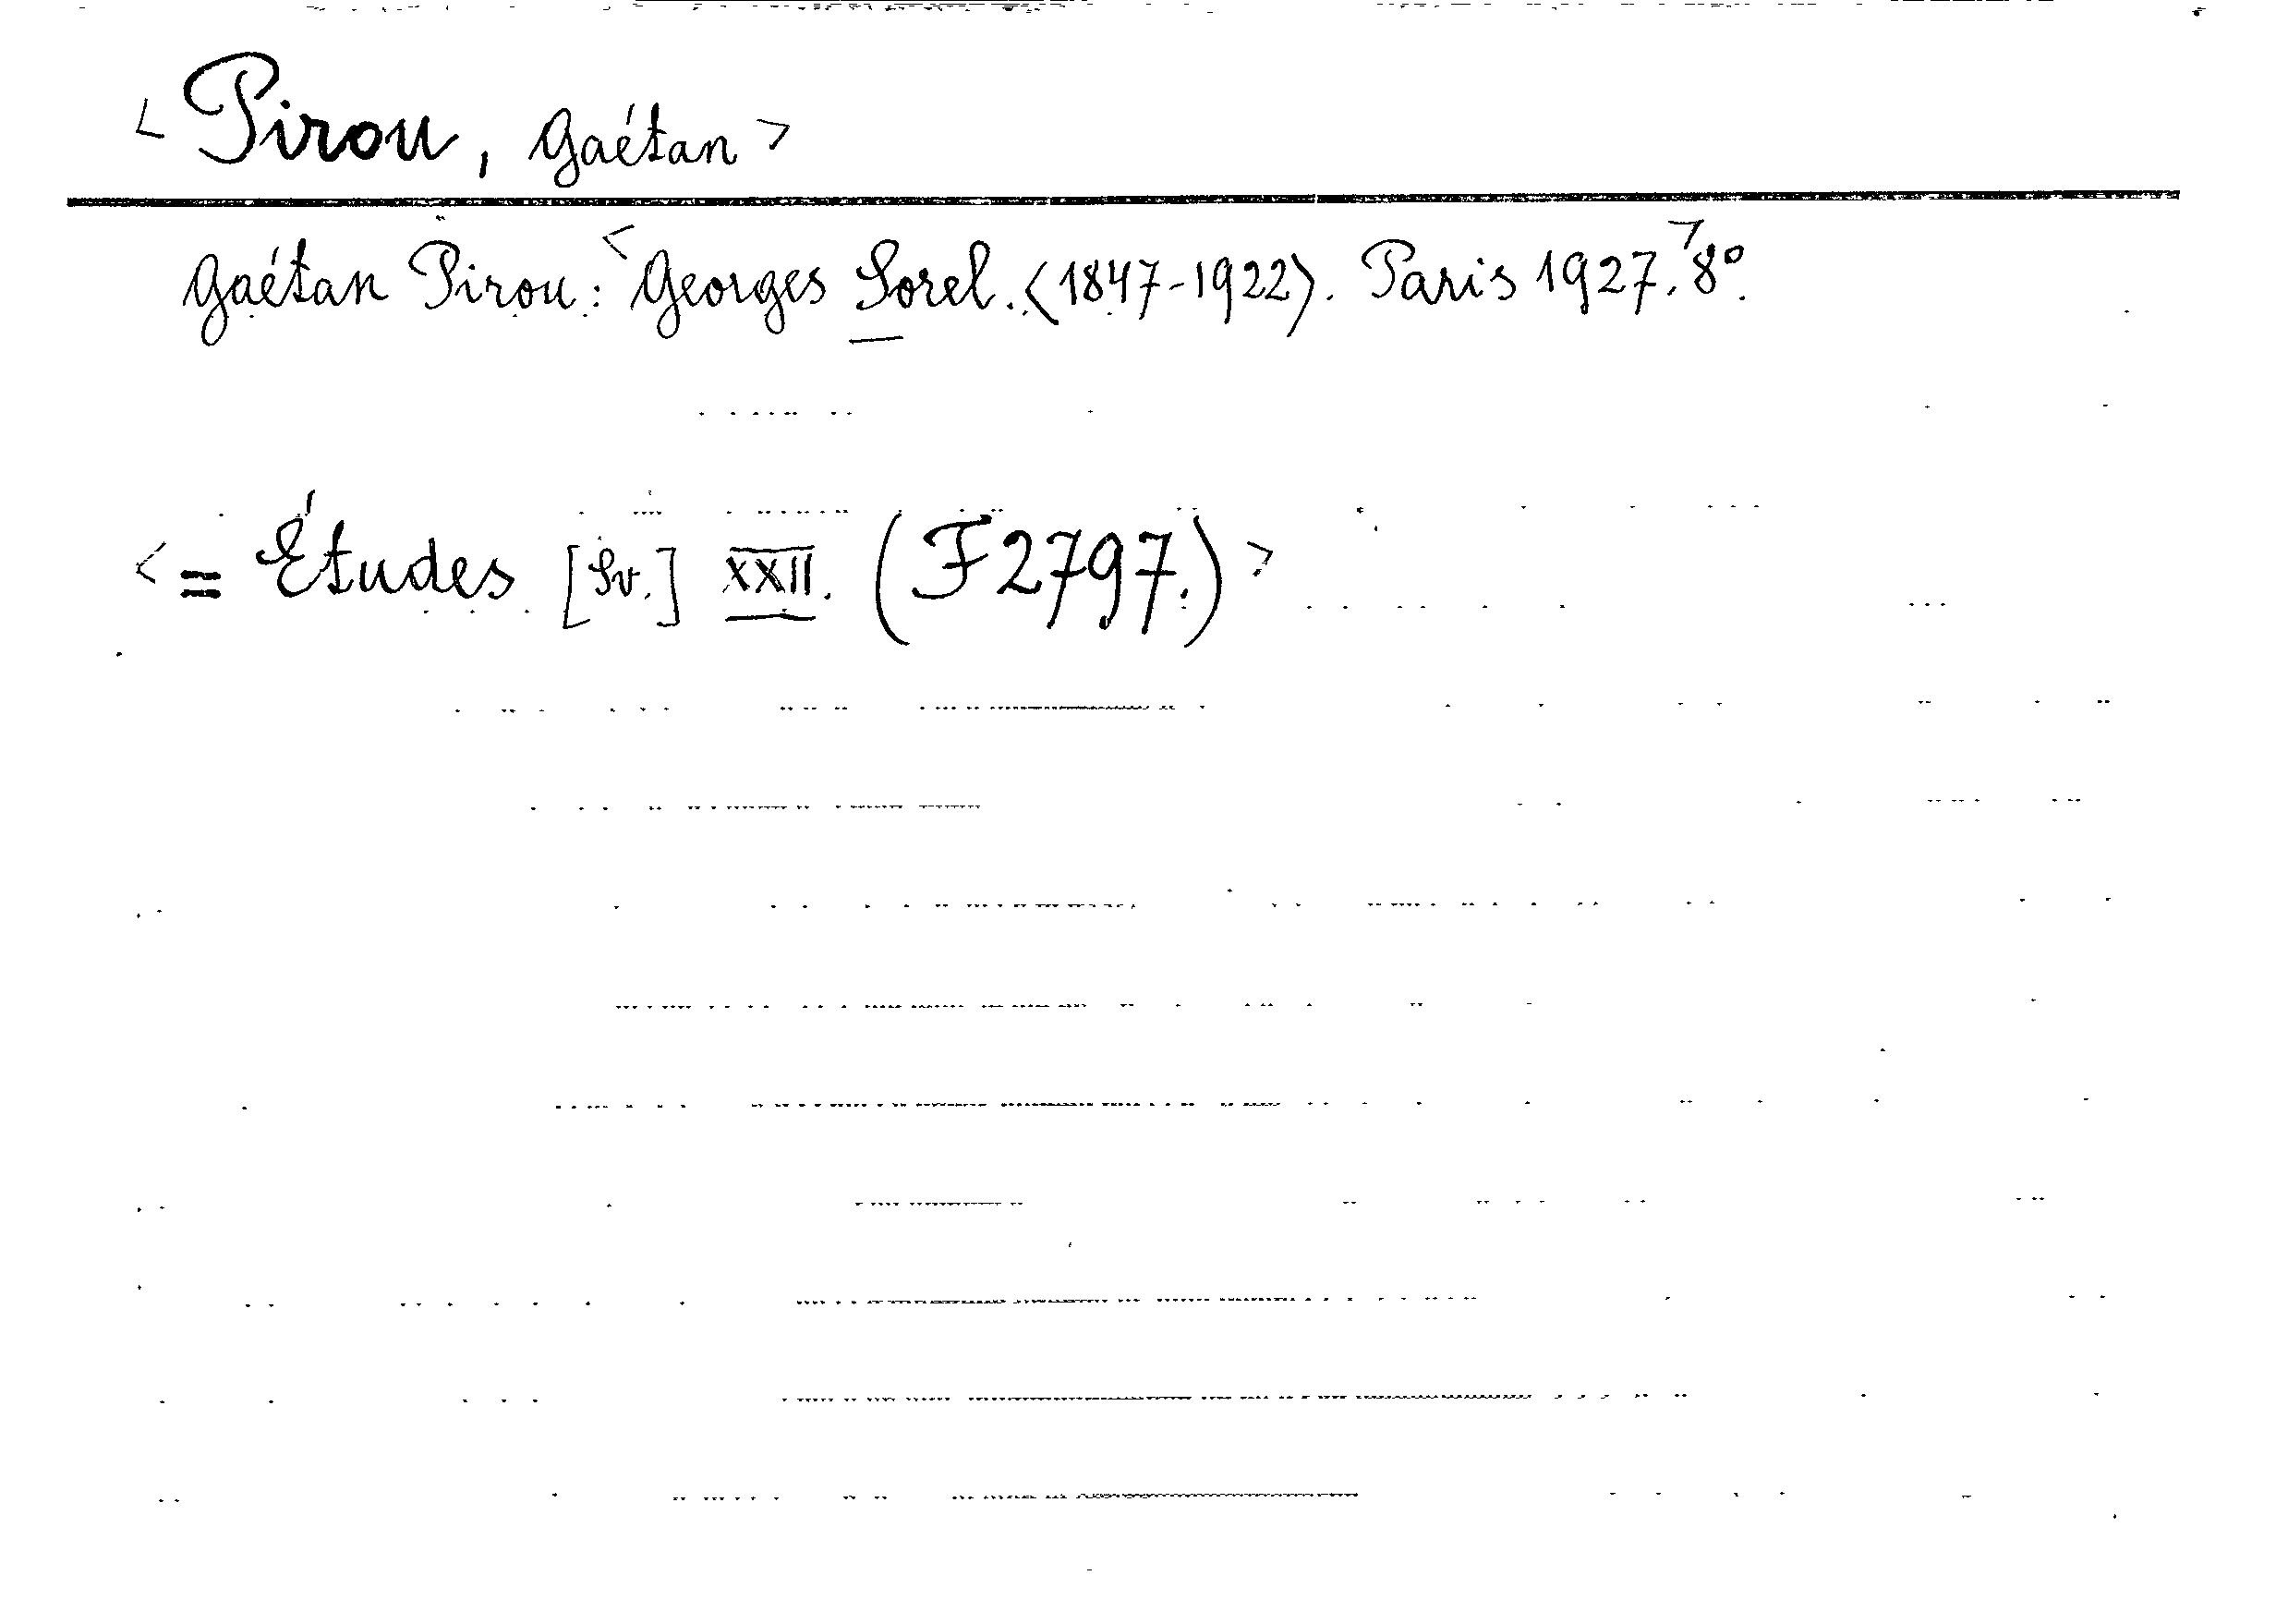 < Pirou, Gaétan >
Gaétan Pirou: <Georges Sorel. <1847-1922). Paris 1927.> 8°.
< = Études [Sv.] XXII. (F2797.) >